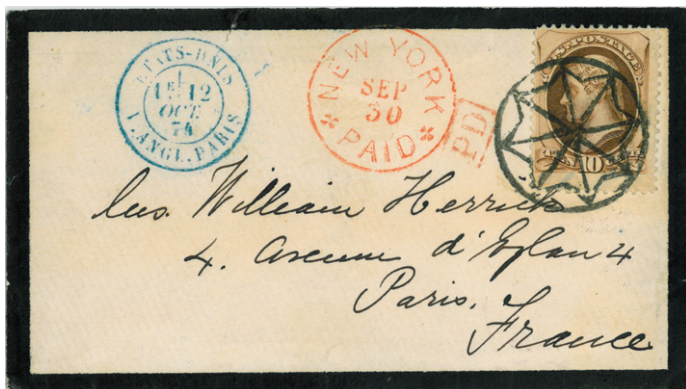 ETATS-UNIS
1E 12
OCT
74
L.ANGL.PARIS
NEW YORK
SEP
30
PAID
PD
10
William Herrick
4. Avenue d'Eylau 4
Paris.
France